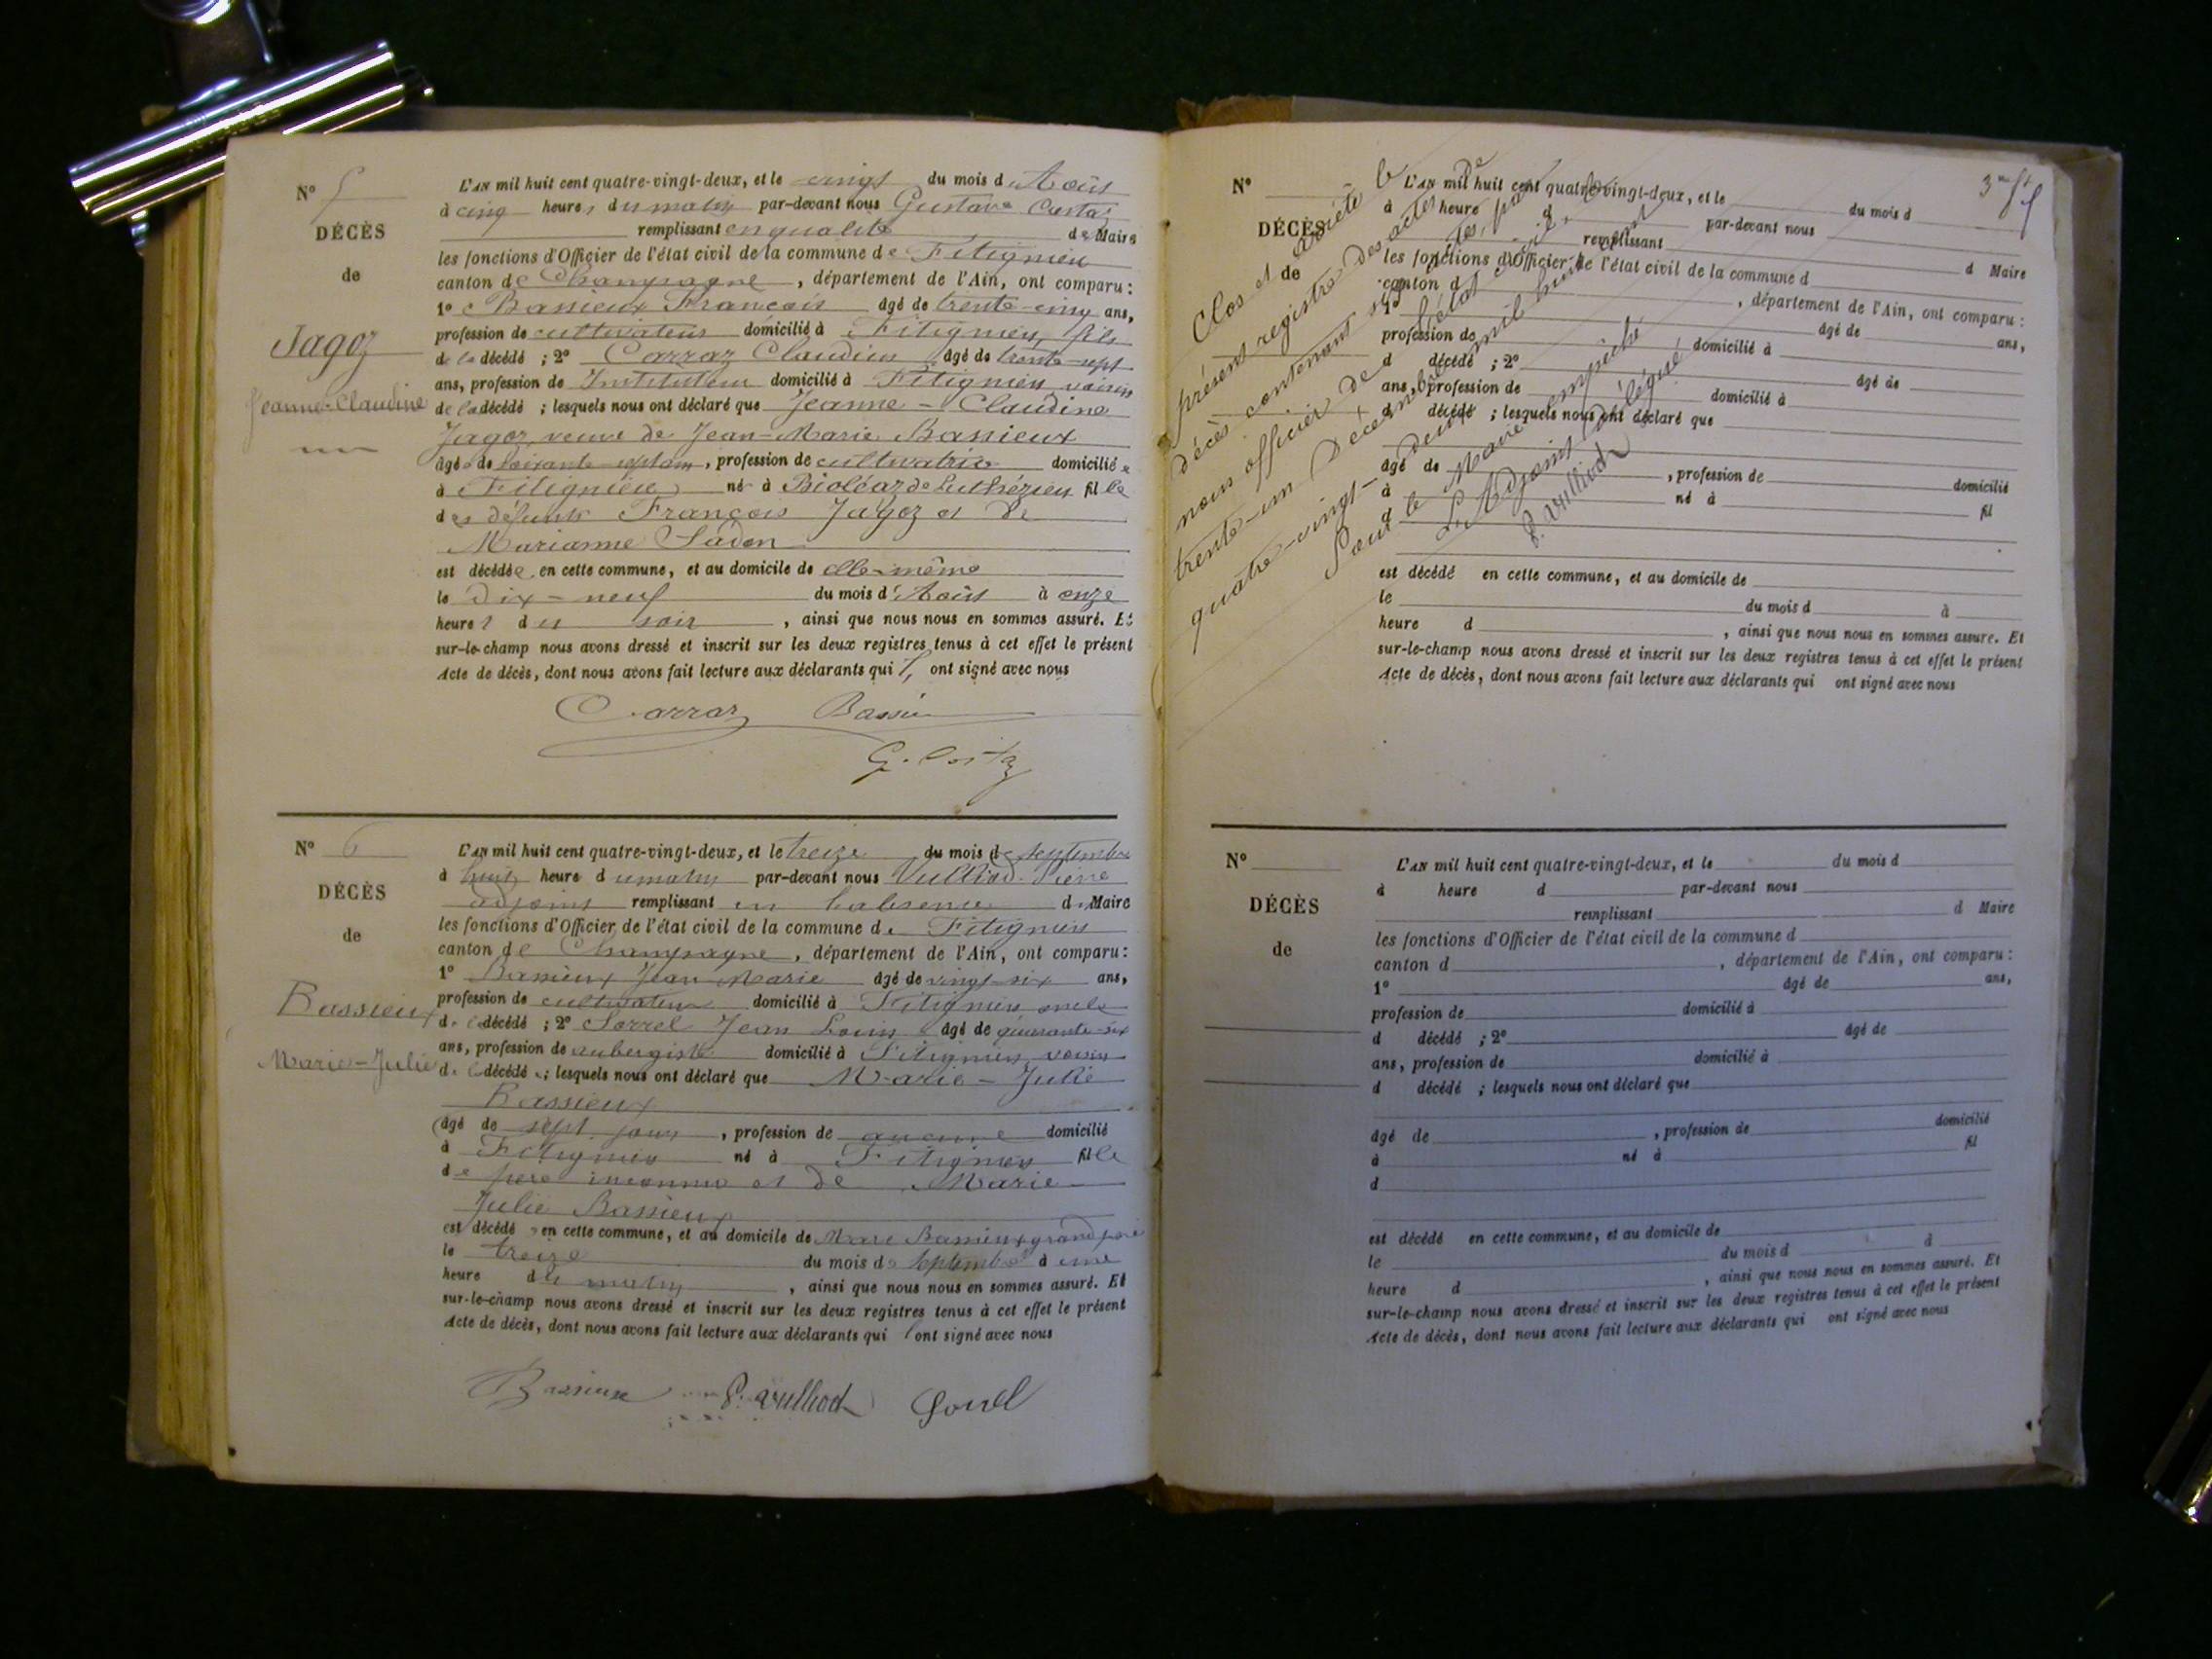 N° 5
DÉCÈS
de
Jagoz
Jeanne-Claudine
L'AN mil huit cent quatre-vingt-deux, et le vingt du mois d'Août
à cinq heures du matin par-devant nous Gustave Costaz
remplissant en qualité de Maire
les fonctions d'Officier de l'état civil de la commune de Fitignieu
canton de Champagne, département de l'Ain, ont comparu:
1° Bassieux François âgé de trente-cinq ans,
profession de cultivateur domicilié à Fitignieu, fils
de la décédé ; 2° Carraz Claudius âgé de trente-sept
ans, profession de Instituteur domicilié à Fitignieu voisin
de la décédé ; lesquels nous ont déclaré que Jeanne-Claudine
Jagoz, veuve de Jean-Marie Bassieux
âgé de soixante ans, profession de cultivatrice domiciliée
à Fitignieu né à Bioléaz de Luthézieu fille
des défunts François Jagoz et de
Marianne
est décédée en cette commune, et au domicile de elle-même
le dix-neuf du mois d'Août à onze
heures du soir, ainsi que nous nous en sommes assuré. Et
sur-le-champ nous avons dressé et inscrit sur les deux registres tenus à cet effet le présent
Acte de décès, dont nous avons fait lecture aux déclarants qui ont signé avec nous
Carraz Bassieu
G. Costaz
N° 6
DÉCÈS
de
Bassieux
Marie-Julie
L'AN mil huit cent quatre-vingt-deux, et le treize du mois de septembre
à huit heure du matin par-devant nous Vulliod Pierre
adjoint remplissant en l'absence du Maire
les fonctions d'Officier de l'état civil de la commune de Fitignieu
canton de Champagne, département de l'Ain, ont comparu:
1° Bassieux Jean Marie âgé de vingt-six ans,
profession de cultivateur domicilié à Fitignieu oncle
de la décédé ; 2° Sorrel Jean Louis âgé de quarante-six
ans, profession de aubergiste domicilié à Fitignieu, voisin
de la décédée ; lesquels nous ont déclaré que Marie-Julie
Bassieux
âgé de sept jours, profession de aucune domicilié
à Fitignieu né à Fitignieu fille
de père inconnu et de Marie
Julie Bassieux
est décédée en cette commune, et au domicile de Marc Bassieux grand père
le treize du mois de septembre à une
heure du matin, ainsi que nous nous en sommes assuré. Et
sur-le-champ nous avons dressé et inscrit sur les deux registres tenus à cet effet le présent
Acte de décès, dont nous avons fait lecture aux déclarants qui ont signé avec nous
Bassieux P. Vulliod Sorrel
3me
N°
DÉCÈS
de
L'AN mil huit cent quatre-vingt-deux, et le du mois d
à heure d par-devant nous
remplissant d Maire
les fonctions d'Officier de l'état civil de la commune d
canton d , département de l'Ain, ont comparu :
1° âgé de ans,
profession de domicilié à
d décédé ; 2° âgé de
ans, profession de domicilié à
d décédé ; lesquels nous ont déclaré que
âgé de , profession de domicilié
à né à fil
d
est décédé en cette commune, et au domicile de
le du mois d à
heure d , ainsi que nous nous en sommes assuré. Et
sur-le-champ nous avons dressé et inscrit sur les deux registres tenus à cet effet le présent
Acte de décès, dont nous avons fait lecture aux déclarants qui ont signé avec nous
Clos et arrêté le
présent registre des actes de
décès contenant six actes, par
nous officier de l'état civil, le
trente-un Décembre mil huit cent
quatre-vingt-deux
Pour le Maire empêché
L'Adjoint délégué
P. Vulliod
N°
DÉCÈS
de
L'AN mil huit cent quatre-vingt-deux, et le du mois d
à heure d par-devant nous
remplissant d Maire
les fonctions d'Officier de l'état civil de la commune d
canton d , département de l'Ain, ont comparu :
1° âgé de ans,
profession de domicilié à
d décédé ; 2° âgé de
ans, profession de domicilié à
d décédé ; lesquels nous ont déclaré que
âgé de , profession de domicilié
à né à fil
d
est décédé en cette commune, et au domicile de
le du mois d à
heure d , ainsi que nous nous en sommes assuré. Et
sur-le-champ nous avons dressé et inscrit sur les deux registres tenus à cet effet le présent
Acte de décès, dont nous avons fait lecture aux déclarants qui ont signé avec nous